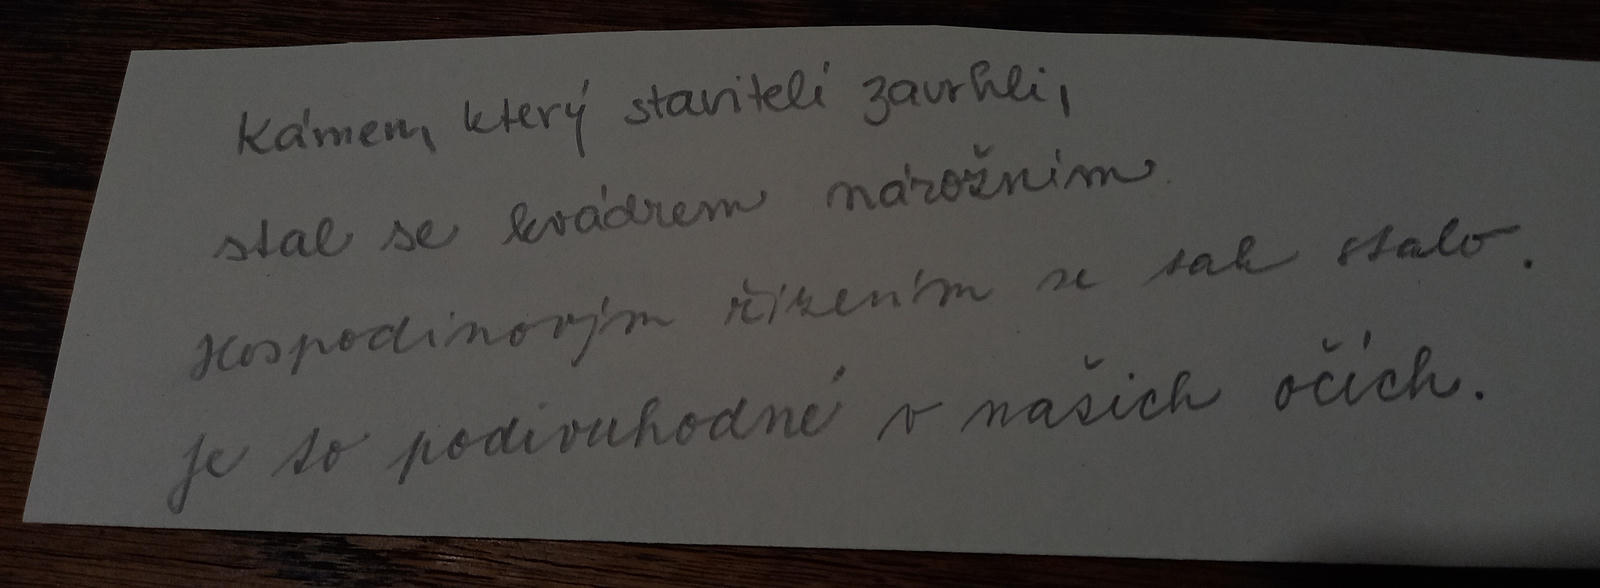 Kámen, který stavitelí zavrhli,
stal se kvádrem nárožním
Hospodinovým řízením se tak stalo.
je to podivuhodné v našich očích.